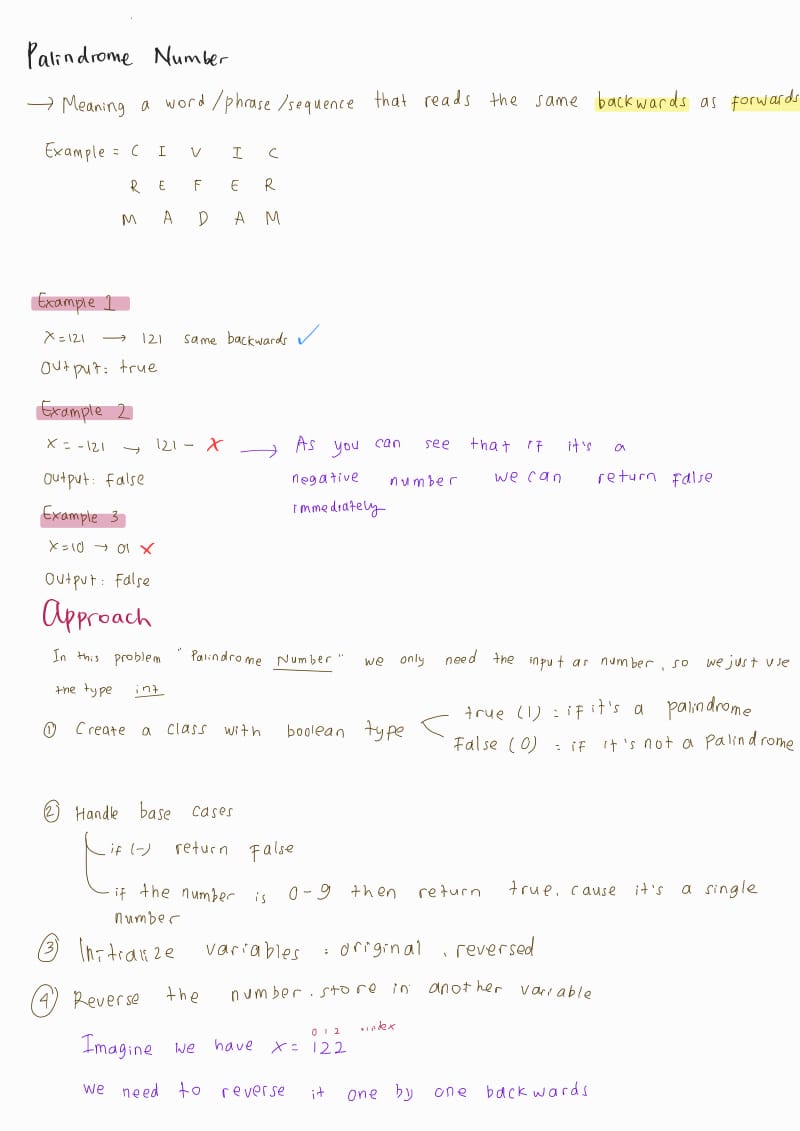 Palindrome Number
→ Meaning a word/phrase/sequence that reads the same backwards as forwards
Example = C I V I C
R E F E R
M A D A M
Example 1
X=121 → 121 same backwards ✓
Output: true
Example 2
X = -121 → 121- X → As you can see that if it's a
Output: False
negative number we can return False
immediately
Example 3
X=10 → 01 X
Output: False
Approach
In this problem "Palindrome Number" we only need the input as number, so we just use
the type int
① Create a class with boolean type
true (1) : if it's a palindrome
False (0) : if it's not a palindrome
② Handle base cases
if (-) return False
if the number is 0-9 then return true. cause it's a single
number
③ Initialize variables : original, reversed
④ Reverse the number. store in another variable
0 1 2 index
Imagine we have x = 122
we need to reverse it one by one backwards